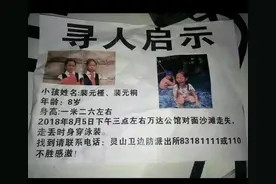 寻人启示
小孩姓名:裴元槿、裴元桐
年龄: 8岁
身高:一米二六左右
2018年8月5日下午三点左右万达公馆对面沙滩走失,
走丢时身穿泳装。
找到请联系电话: 灵山卫边防派出所83181111或110
不胜感激!